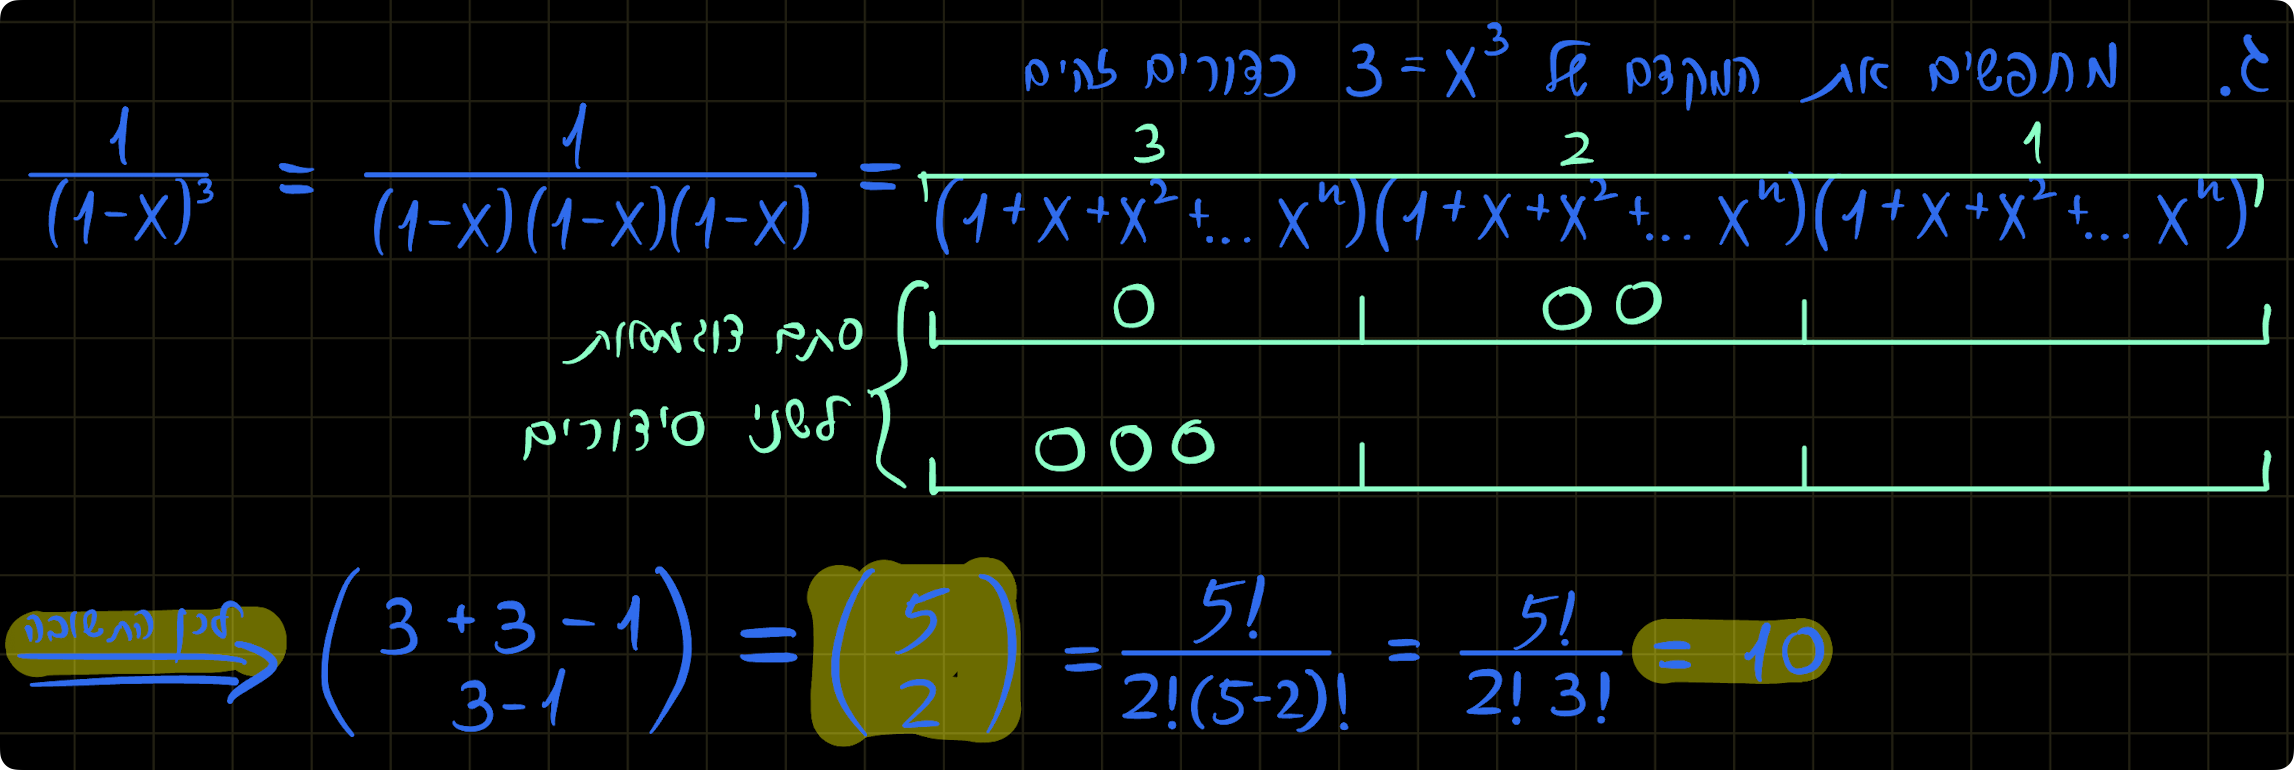 ג. מחפשים את המקדם של x³ = 3 כדורים זהים
3 2 1
1/(1-x)³ = 1/((1-x)(1-x)(1-x)) = (1+x+x²+... xⁿ)(1+x+x²+... xⁿ)(1+x+x²+... xⁿ)
סתם דוגמאות
לשני סידורים
לכן התשובה ⇒ (3+3-1 / 3-1) = (5 / 2) = 5!/(2!(5-2)!) = 5!/(2! 3!) = 10